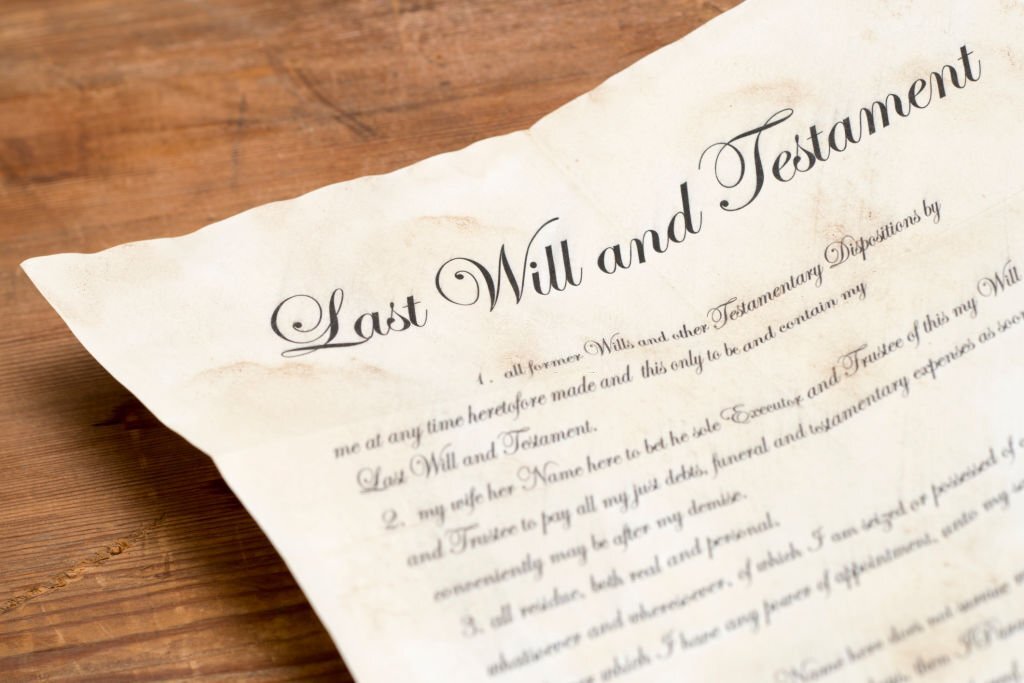 Last Will and Testament
1. all former Wills and other Testamentary Dispositions by
me at any time heretofore made and this only to be and contain my
Last Will and Testament.
2. my wife her Name here to bet he sole Executor and Trustee of this my Will
and Trustee to pay all my just debts, funeral and testamentary expenses as soon
conveniently may be after my demise.
3. all residue, both real and personal.
whatsoever and wheresoever, of which I am seized or possessed of
which I have any power of appointment, unto my
Name here does not
them